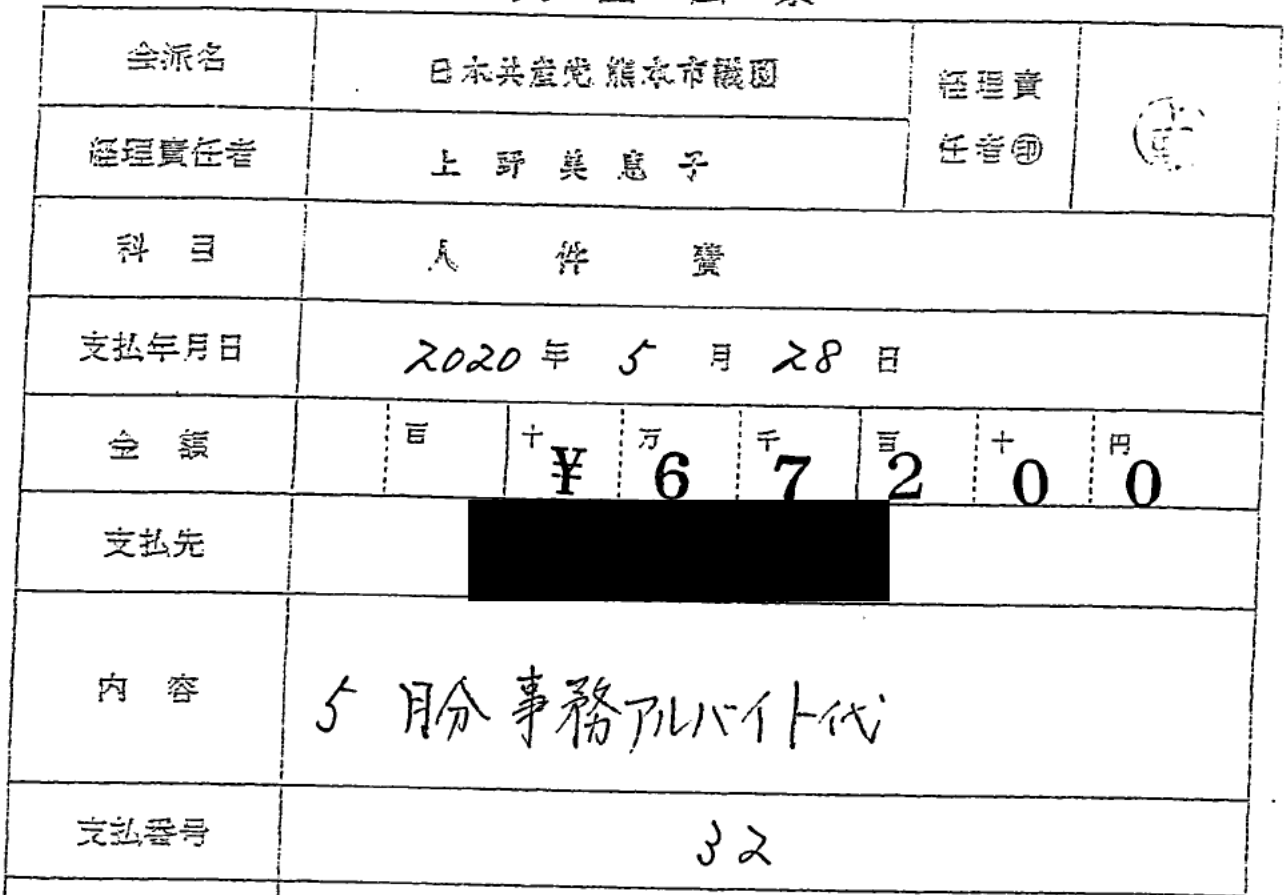 会派名 日本共産党熊本市議団 経理責任者㊞
経理責任者 上野美恵子
科目 人件費
支払年月日 2020年5月28日
金額 百 十 万 千 百 十 円
¥67200
支払先
内容 5月分事務アルバイト代
支払番号 32